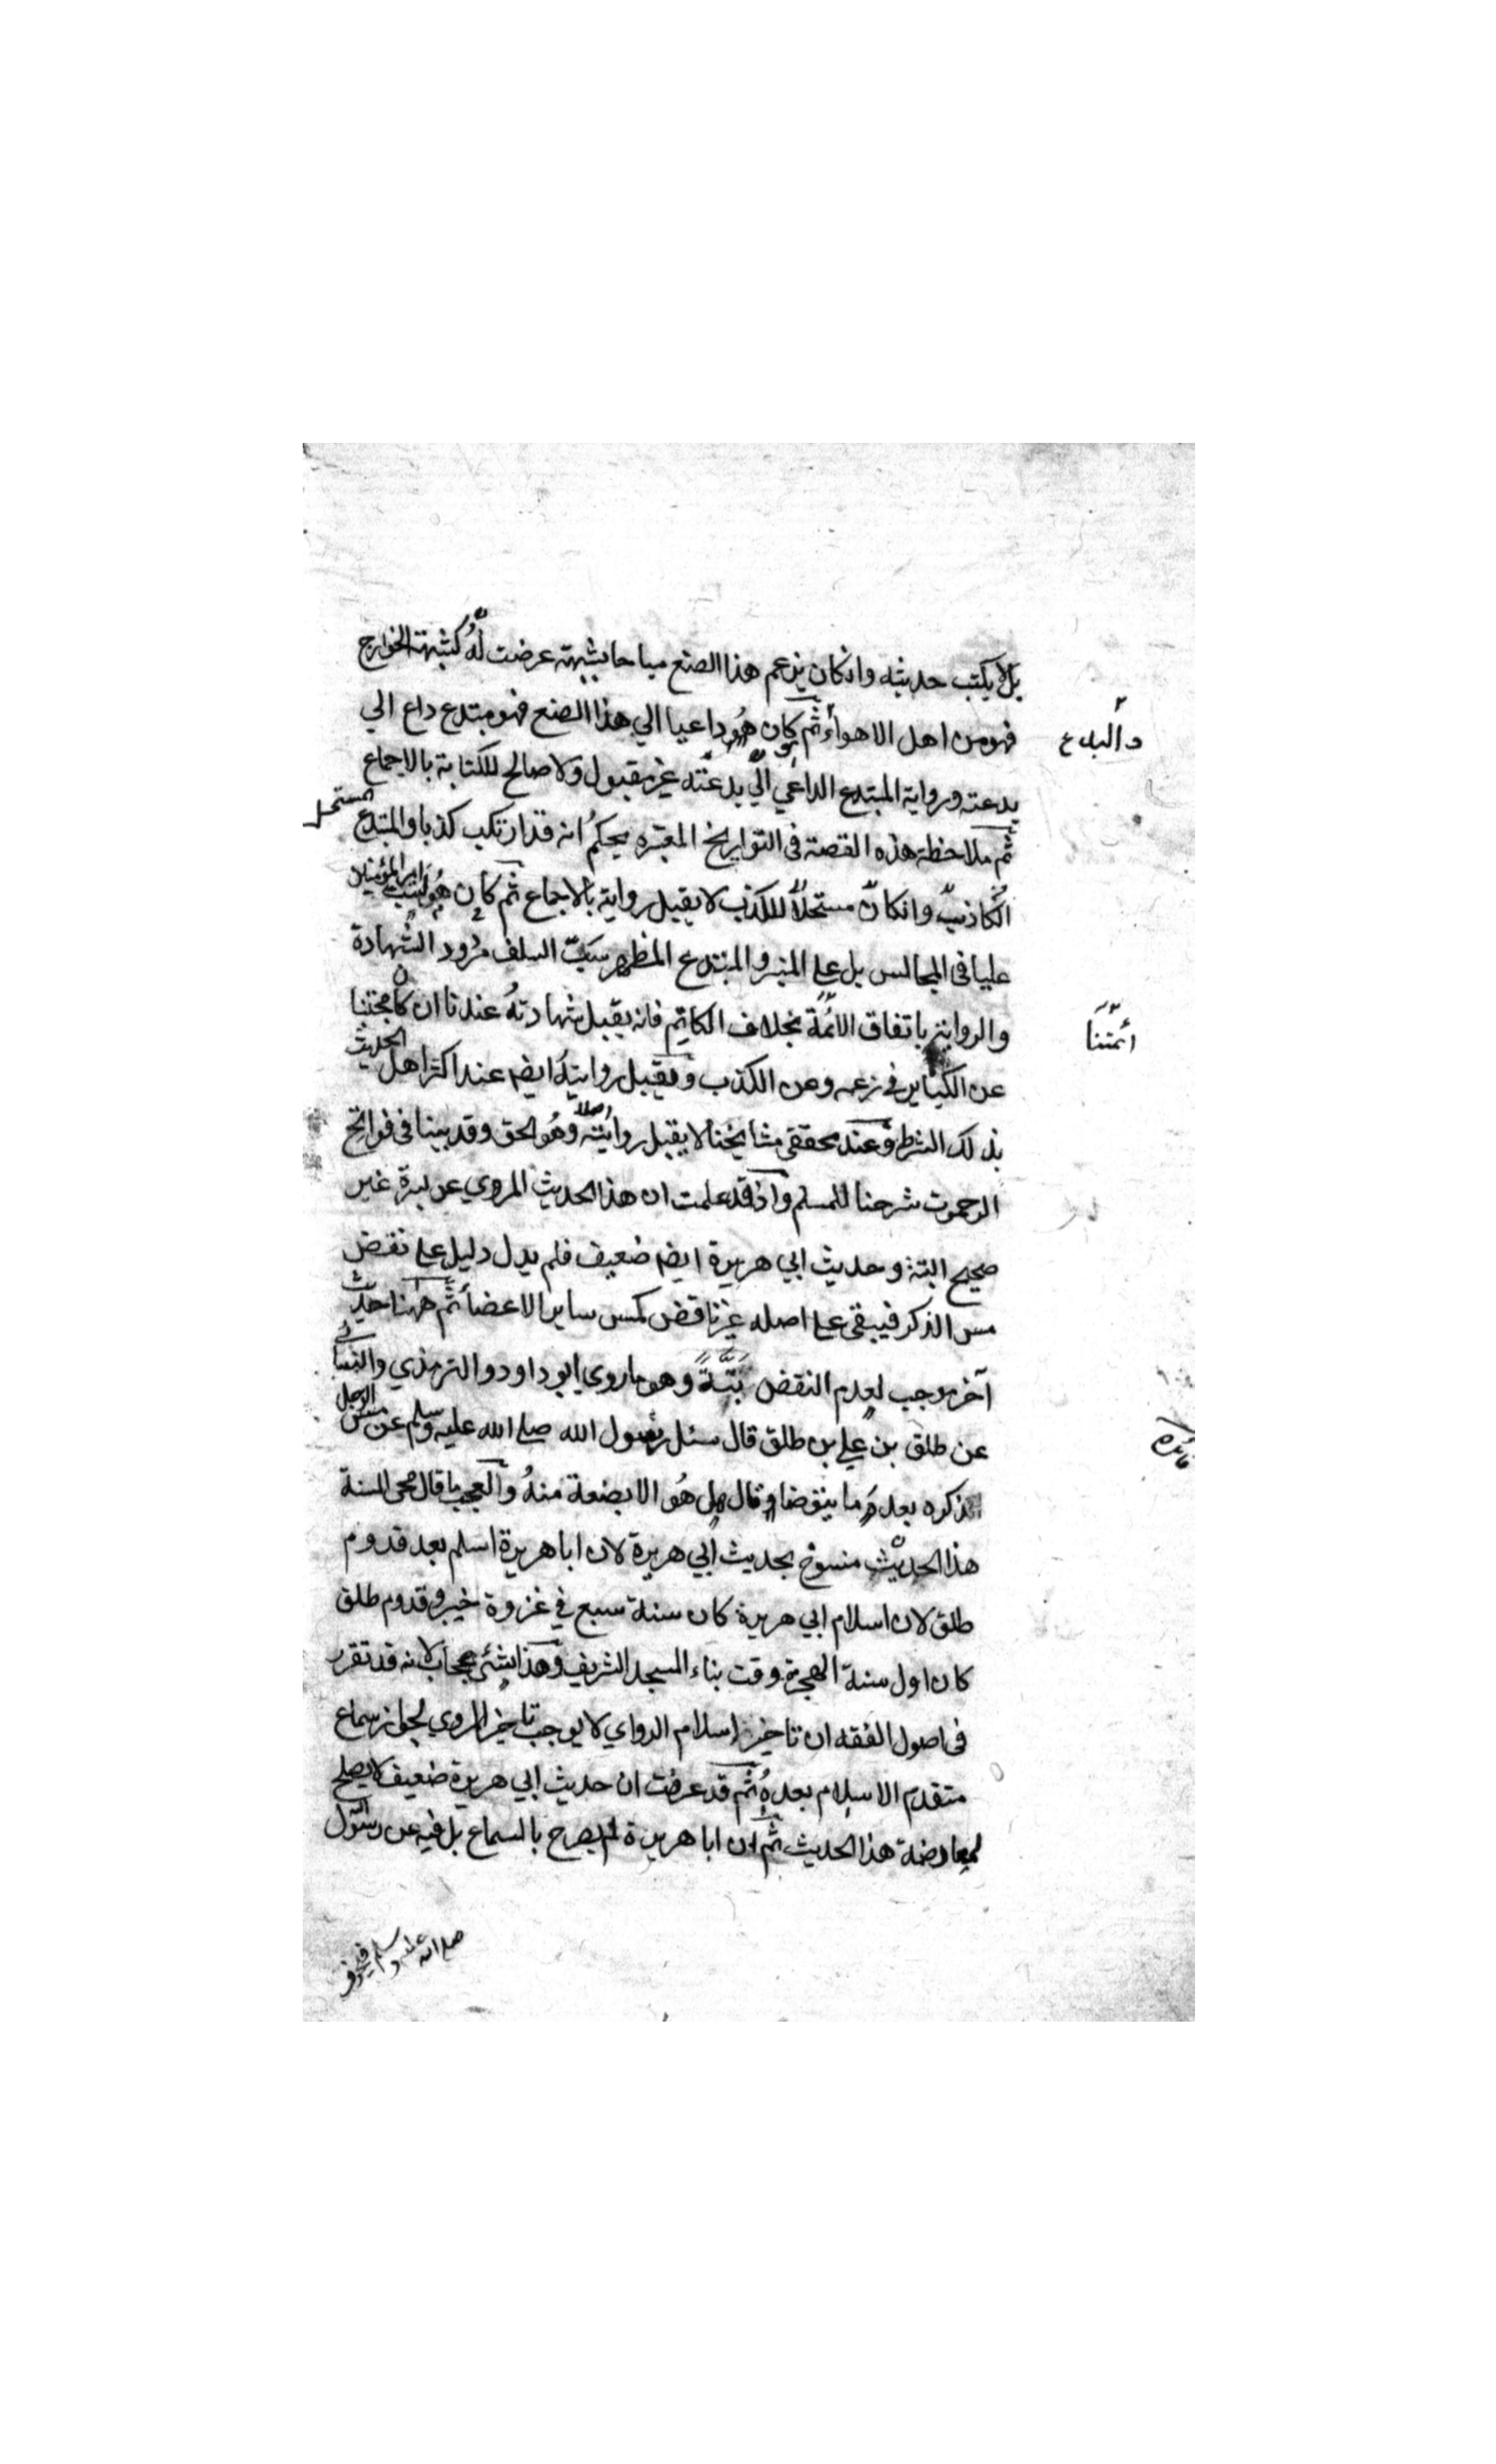 بل لا يكتب حديثه وان كان يزعم هذا الصنع مباحا بشبهة عرضت له كشبهة الخوارج
فهو من اهل الاهواء ثم كان هو داعيا الي هذا الصنع فهو مبتدع داع الي
والبدع
بدعته ورواية المبتدع الداعي الي بدعته غير مقبول ولا صالح للكتابة بالاجماع
ثم ملاحظة هذه القصة فى التواريخ المعتبره يحكم انه قد ارتكب كذبا والمبتدع المستحل
الكاذب وانكان مستحلا للكذب لا يقبل رواية بالاجماع ثم كان هو يسب امير المؤمنين
عليا فى المجالس بل علي المنبر والمبتدع المظهر سب السلف مردود الشهادة
والرواية باتفاق الائمة بخلاف الكاتم فانه يقبل شهادته عندنا ان كان مجتنبا
أئمتنا
عن الكبائر في زعمه وعن الكذب ويقبل روايته ايضا عند اكثر اهل الحديث
بذلك الشرط وعند محققى مشايخنا لا يقبل روايته اصلا وهو الحق وقد بينا فى فواتح
الرحموت شرحنا للمسلم واذا قد علمت ان هذا الحديث المروي عن بسرة غير
صحيح البتة وحديث ابي هريرة ايضا ضعيف فلم يدل دليل علي نقض
مس الذكر فيبقى علي اصله غير ناقض كمس ساير الاعضاء ثم ههنا حديث
آخر موجب لعدم النقض بتة وهو ما روي ابو داود والترمذي والنسائى
عن طلق بن علي بن طلق قال سئل رسول الله صلي الله عليه وسلم عن مس الرجل
فايده
ذكره بعد ما يتوضا وقال هل هو الا بضعة منه والعجب ما قال محى السنة
هذا الحديث منسوخ بحديث ابي هريرة لان ابا هريرة اسلم بعد قدوم
طلق لان اسلام ابي هريرة كان سنة سبع في غزوة خيبر وقدوم طلق
كان اول سنة الهجرة وقت بناء المسجد الشريف وهذا شئ عجاب لانه قد تقرر
فى اصول الفقه ان تاخير اسلام الراوي لا يوجب تاخير المروي لجواز سماع
متقدم الاسلام بعده ثم قد عرفت ان حديث ابي هريرة ضعيف لا يصلح
لمعارضة هذا الحديث ثم ان ابا هريرة لم يصرح بالسماع بل فيه عن رسول
صلي الله عليه وسلم